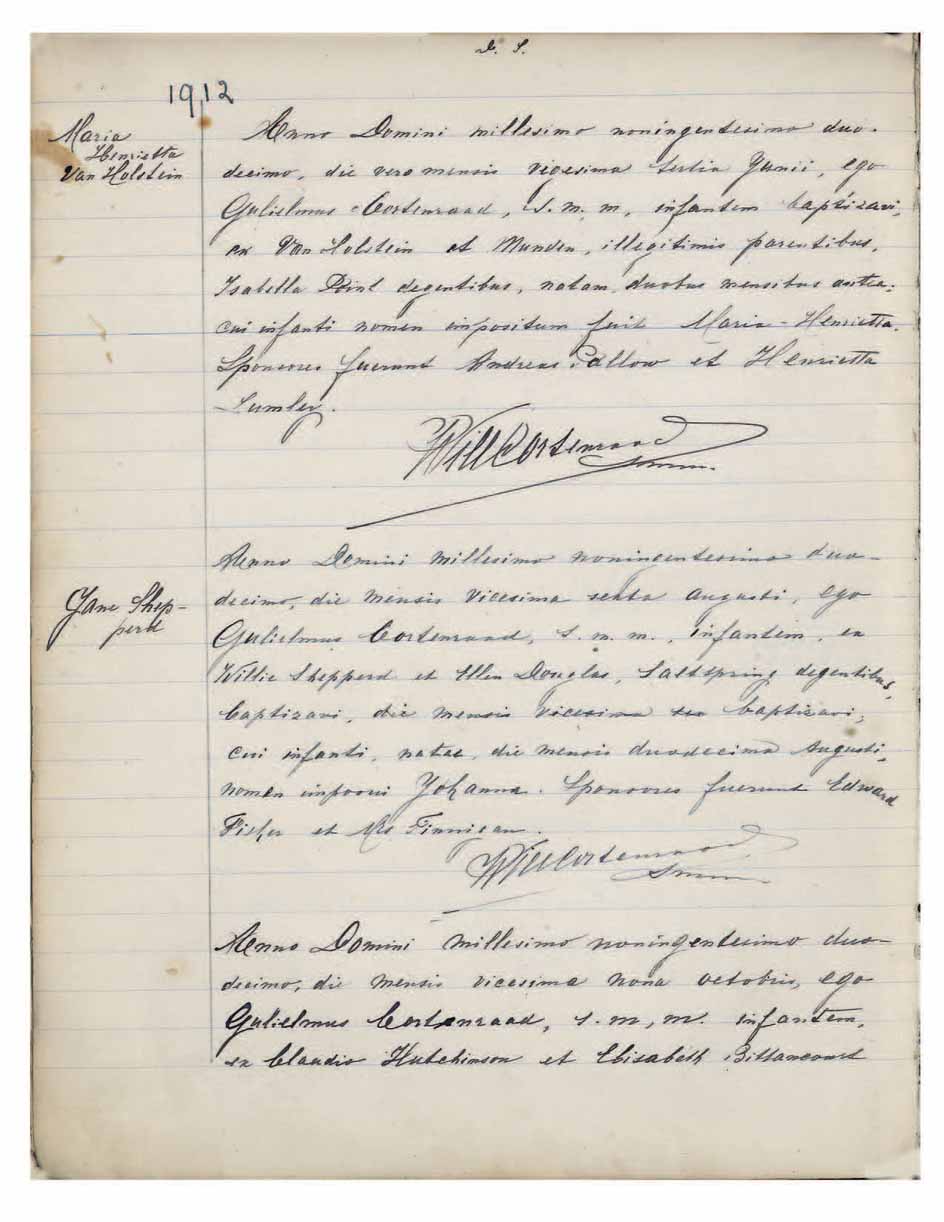 D. S.
1912
Maria
Henrietta
Van Holstein
Anno Domini millesimo noningentesimo duo-
decimo, die vero mensis vigesima tertia Junii, ego
Gulielmus Cortenraad, s.m.m, infantem baptizavi,
ex Van Holstein et Munden, illegitimis parentibus,
Isabella Point degentibus, natam duobus mensibus antea,
cui infanti nomen impositum fuit Maria-Henrietta.
Sponsores fuerunt Andreas Pallow et Henrietta
Lumley.
Will Cortenraad
smm.
Jane Shep-
perd
Anno Domini millesimo noningentesimo duo-
decimo, die mensis vicesima sexta Augusti, ego
Gulielmus Cortenraad, s.m.m., infantem, ex
Willie Shepperd et Ellen Douglas, Saltspring degentibus,
baptizavi, die mensis vicesima sex baptizavi,
cui infanti, natae, die mensis duodecima Augusti,
nomen imposui Johanna. Sponsores fuerunt Edward
Fisher et Mrs Finnigan.
Will Cortenraad
smm
Anno Domini millesimo noningentesimo duo-
decimo, die mensis vicesima nona octobris, ego
Gulielmus Cortenraad, s.m,m. infantem,
ex Claudio Hutchinson et Elisabeth Bittancourt